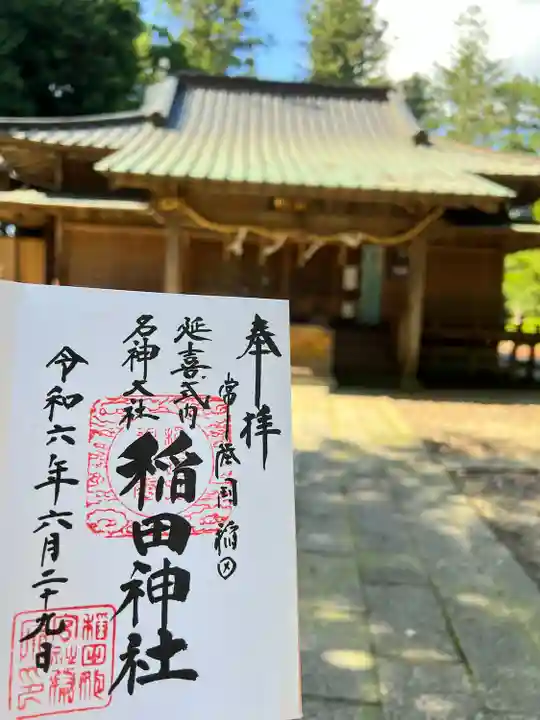 奉拝
常陸国稲田
延喜式内
名神大社
稲田神社
令和六年六月二十九日